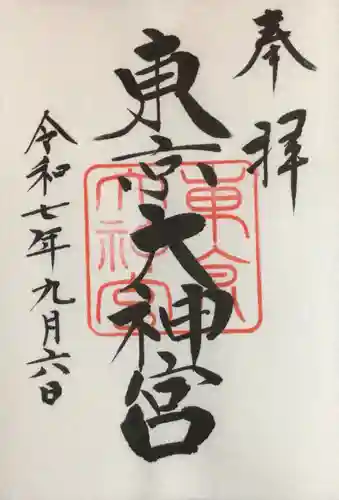 奉拝
東京大神宮
東京大神宮
令和七年九月六日